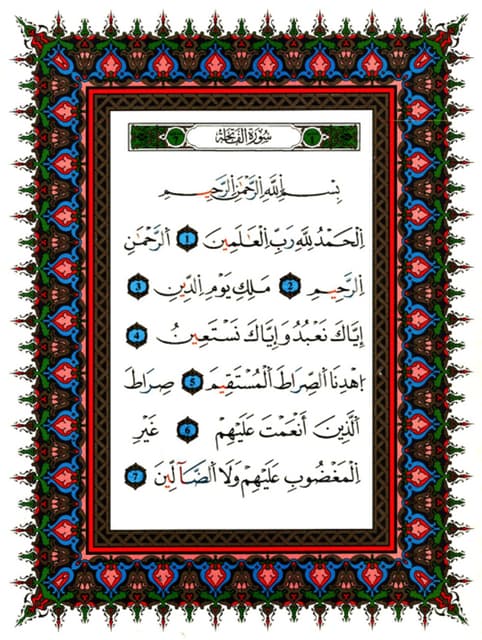 سُورَةُ الفَاتِحَة
بِسْمِ اِللَّهِ اِلرَّحْمَٰنِ اِلرَّحِيمِ
اِلْحَمْدُ لِلهِ رَبِّ اِلْعَٰلَمِينَ 1 اَلرَّحْمَٰنِ
اِلرَّحِيمِ 2 مَلِكِ يَوْمِ اِلدِّينِ 3
إِيَّاكَ نَعْبُدُ وَإِيَّاكَ نَسْتَعِينُ 4
اِهْدِنَا اَلصِّرَاطَ اَلْمُسْتَقِيمَ 5 صِرَاطَ
اَلَّذِينَ أَنْعَمْتَ عَلَيْهِمْ 6 غَيْرِ
اِلْمَغْضُوبِ عَلَيْهِمْ وَلَا اَلضَّآلِّينَ 7